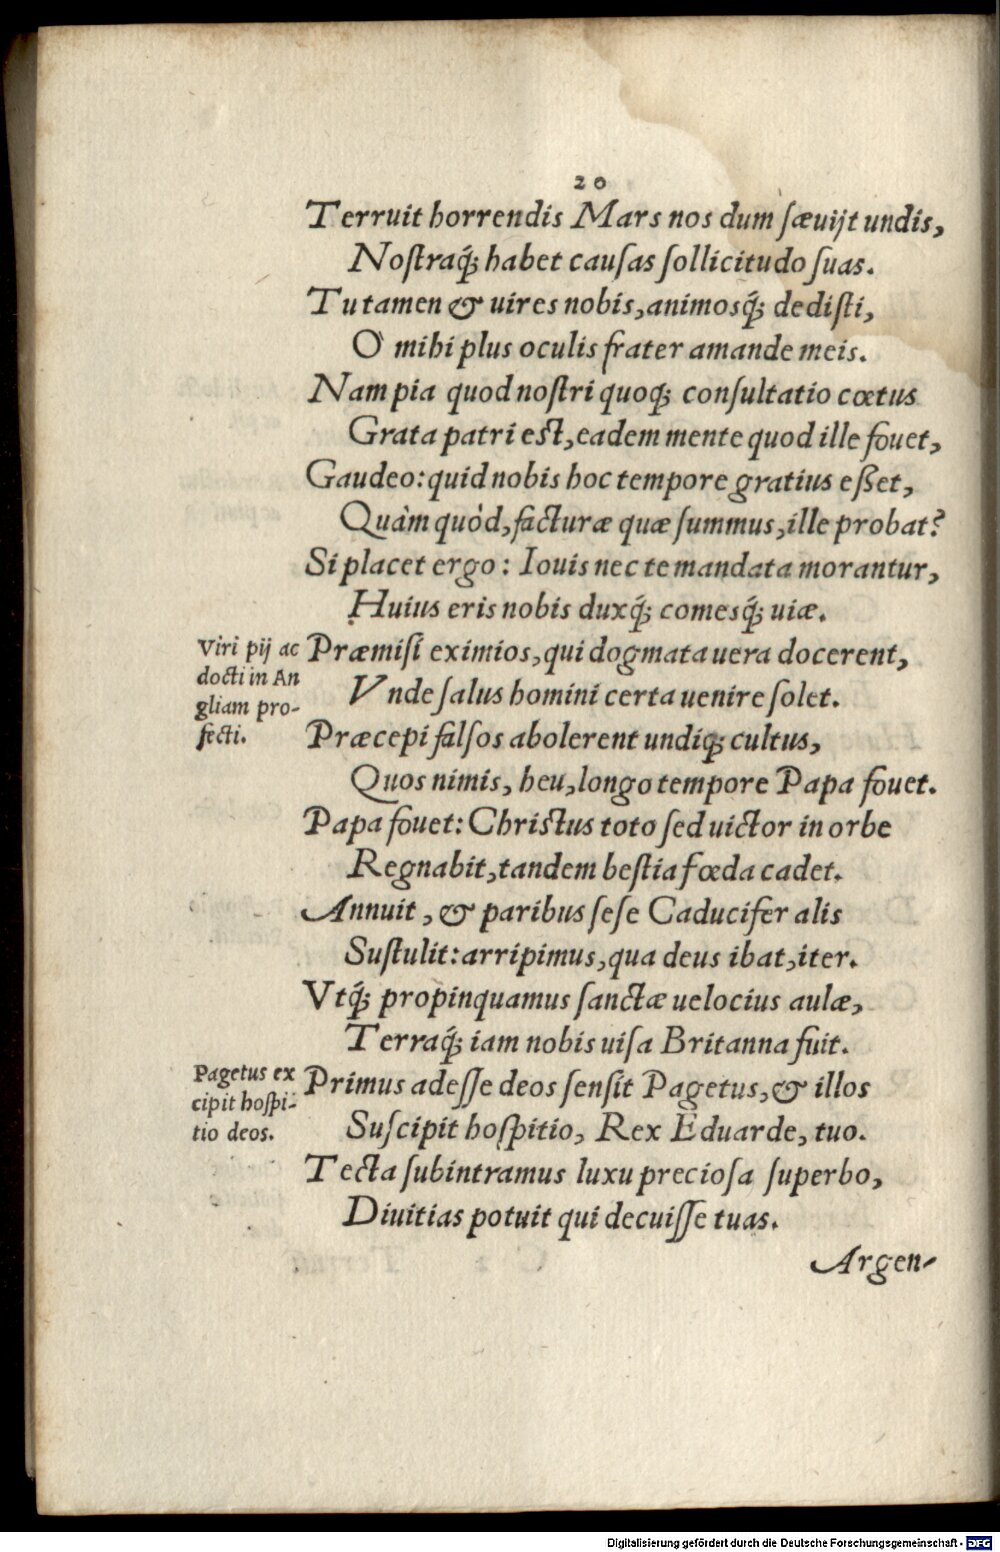 20
Terruit horrendis Mars nos dum sæuijt undis,
Nostraq́; habet causas sollicitudo suas.
Tu tamen & uires nobis, animosq́; dedisti,
O mihi plus oculis frater amande meis.
Nam pia quod nostri quoq; consultatio cœtus
Grata patri est, eadem mente quod ille fouet,
Gaudeo: quid nobis hoc tempore gratius eßet,
Quàm quòd, facturæ quæ summus, ille probat?
Si placet ergo: Iouis nec te mandata morantur,
Huius eris nobis duxq́; comesq́; uiæ.
Viri pij ac
docti in An
gliam pro-
fecti.
Præmisi eximios, qui dogmata uera docerent,
Vnde salus homini certa uenire solet.
Præcepi falsos abolerent undiq; cultus,
Quos nimis, heu, longo tempore Papa fouet.
Papa fouet: Christus toto sed uictor in orbe
Regnabit, tandem bestia fœda cadet.
Annuit, & paribus sese Caducifer alis
Sustulit: arripimus, qua deus ibat, iter.
Vtq́; propinquamus sanctæ uelocius aulæ,
Terraq́; iam nobis uisa Britanna fuit.
Pagetus ex
cipit hospi-
tio deos.
Primus adesse deos sensit Pagetus, & illos
Suscipit hospitio, Rex Eduarde, tuo.
Tecta subintramus luxu preciosa superbo,
Diuitias potuit qui decuisse tuas.
Argen-
Digitalisierung gefördert durch die Deutsche Forschungsgemeinschaft - DFG